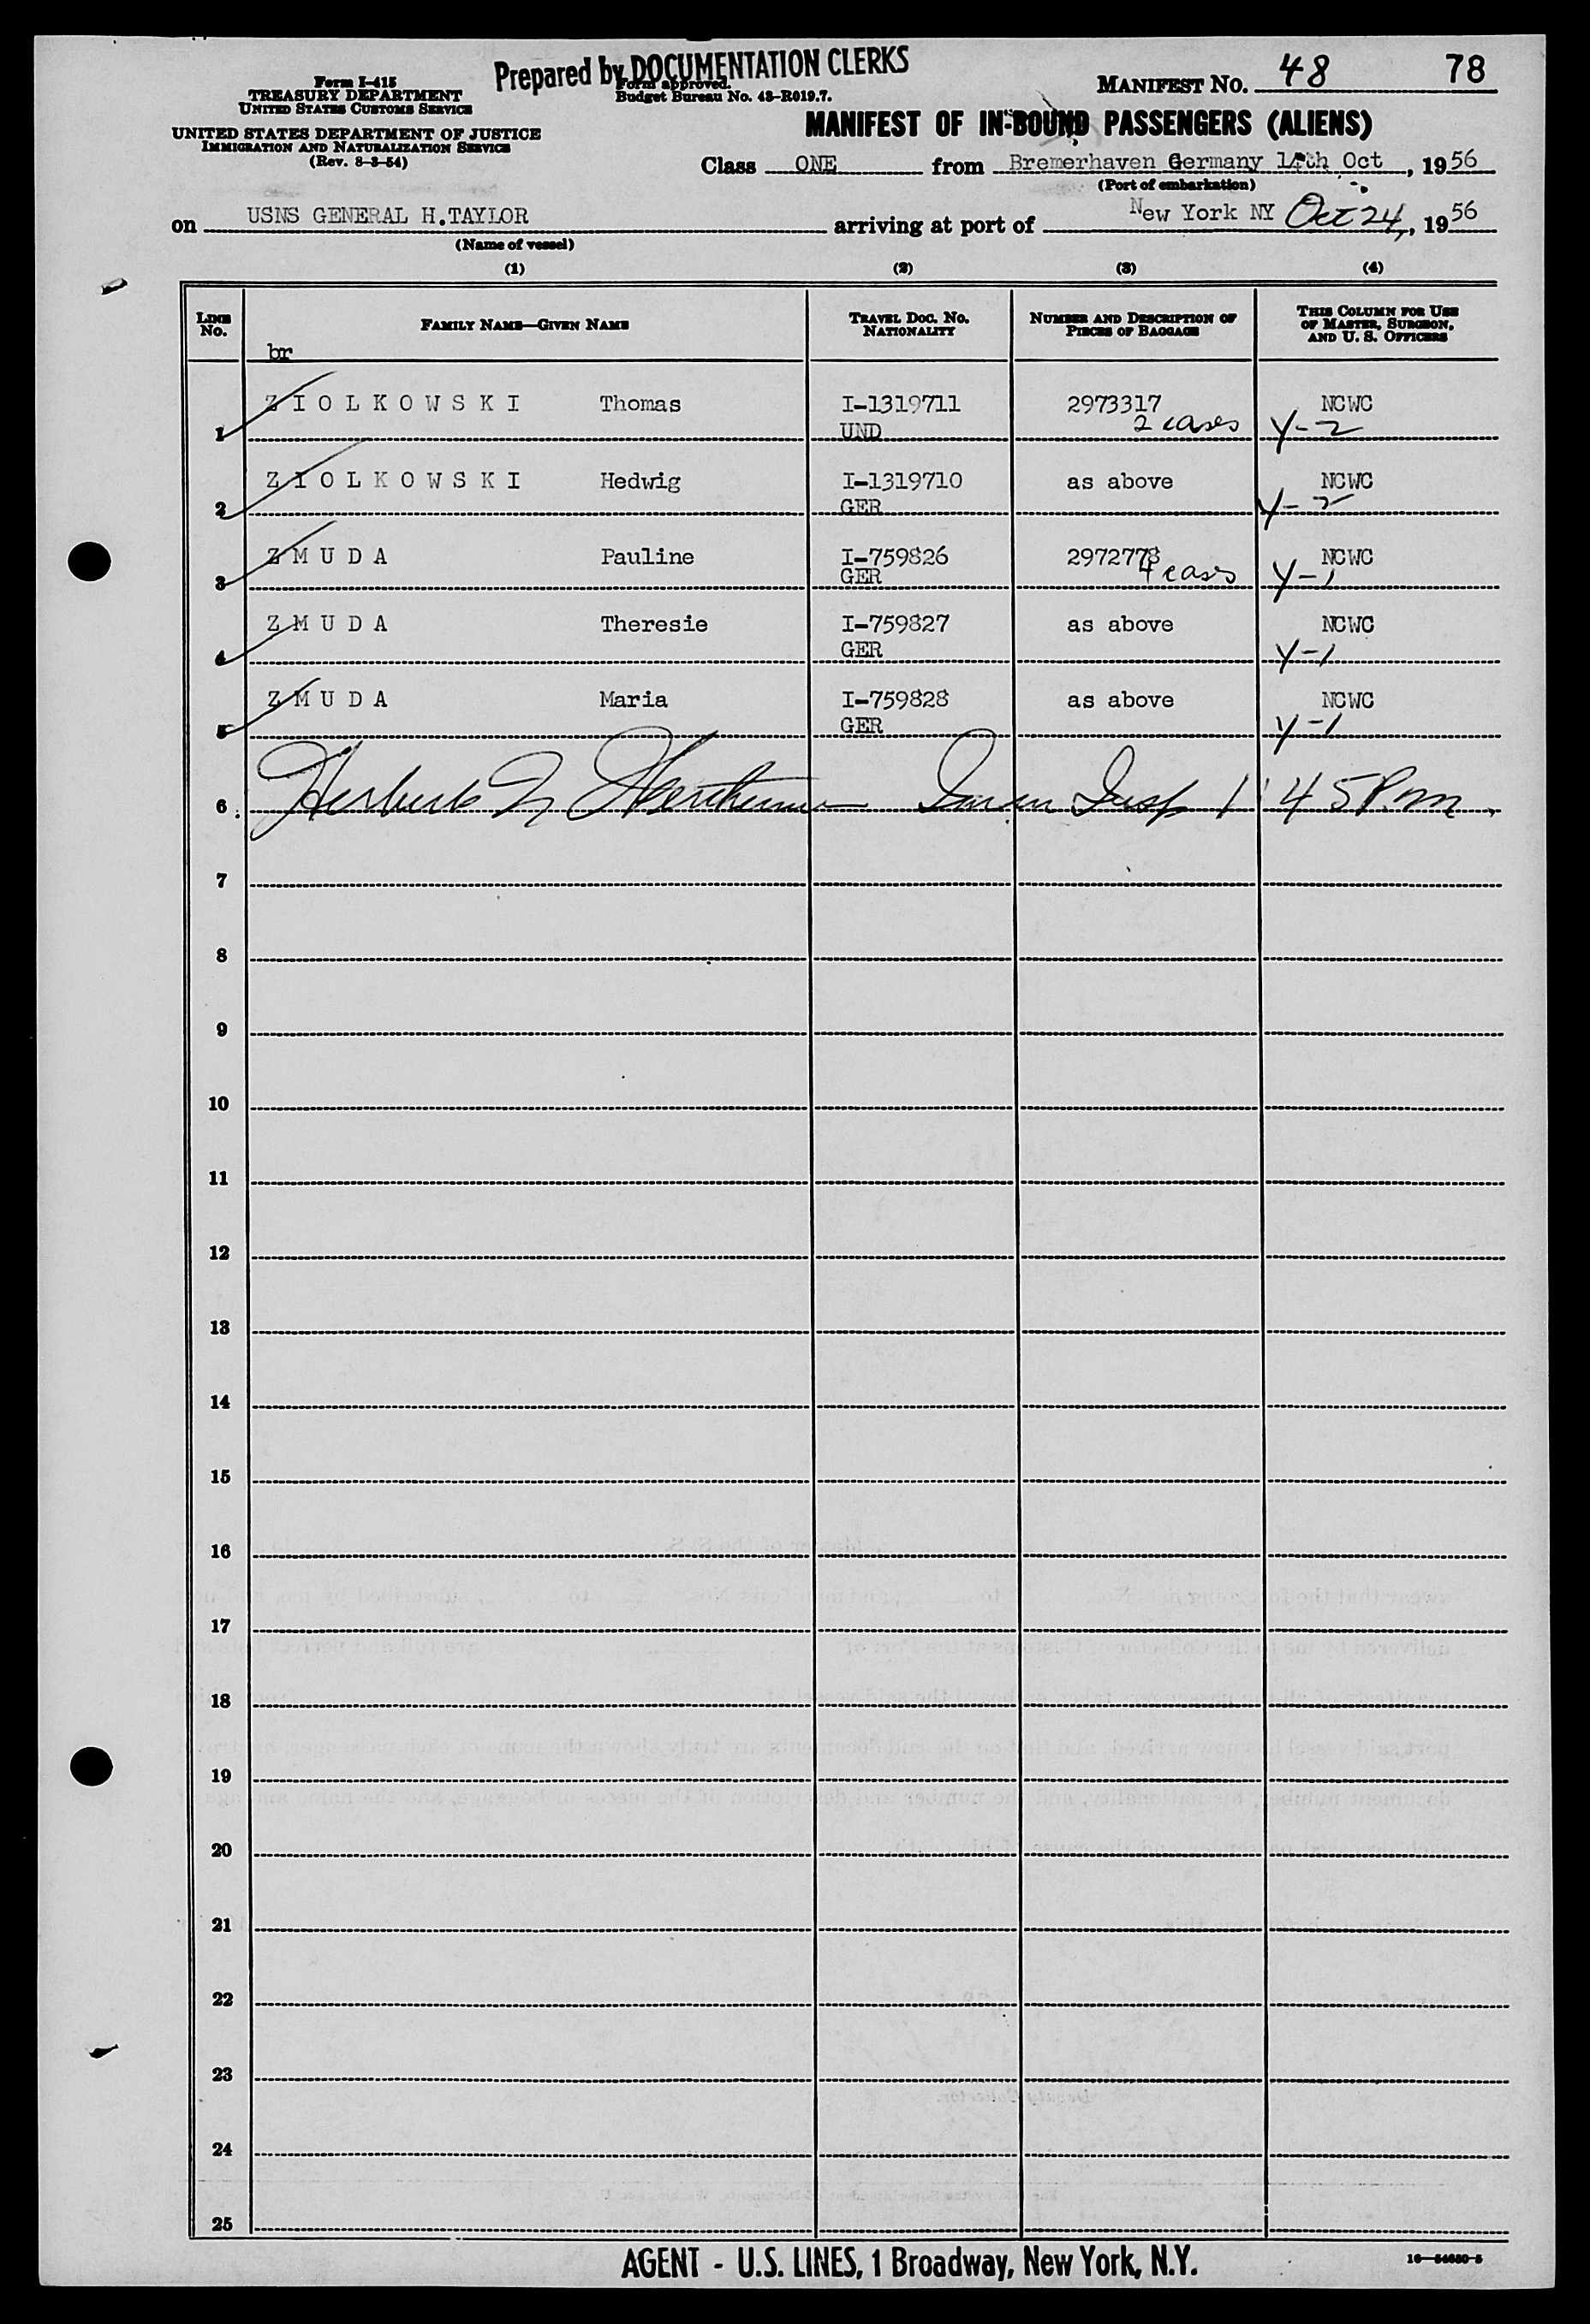 Prepared by DOCUMENTATION CLERKS
Form I-415
TREASURY DEPARTMENT
UNITED STATES CUSTOMS SERVICE
UNITED STATES DEPARTMENT OF JUSTICE
IMMIGRATION AND NATURALIZATION SERVICE
(Rev. 8-3-54)
Form approved.
Budget Bureau No. 43-R019.7.
MANIFEST NO. 48 78
MANIFEST OF IN-BOUND PASSENGERS (ALIENS)
Class ONE from Bremerhaven Germany 14th Oct, 1956
(Port of embarkation)
on USNS GENERAL H.TAYLOR arriving at port of New York NY Oct 24, 1956
(Name of vessel)
(1) (2) (3) (4)
LINE NO. FAMILY NAME—GIVEN NAME TRAVEL DOC. NO. NATIONALITY NUMBER AND DESCRIPTION OF PIECES OF BAGGAGE THIS COLUMN FOR USE OF MASTER, SURGEON, AND U. S. OFFICERS
br
1 ZIOLKOWSKI Thomas I-1319711 2973317 NCWC
UND 2 cases Y-2
2 ZIOLKOWSKI Hedwig I-1319710 as above NCWC
GER Y-2
3 ZMUDA Pauline I-759826 2972778 NCWC
GER 4 cases Y-1
4 ZMUDA Theresie I-759827 as above NCWC
GER Y-1
5 ZMUDA Maria I-759828 as above NCWC
GER Y-1
6 Herbert Insp 1:45 P.m.
7
8
9
10
11
12
13
14
15
16
17
18
19
20
21
22
23
24
25
AGENT - U.S. LINES, 1 Broadway, New York, N.Y.